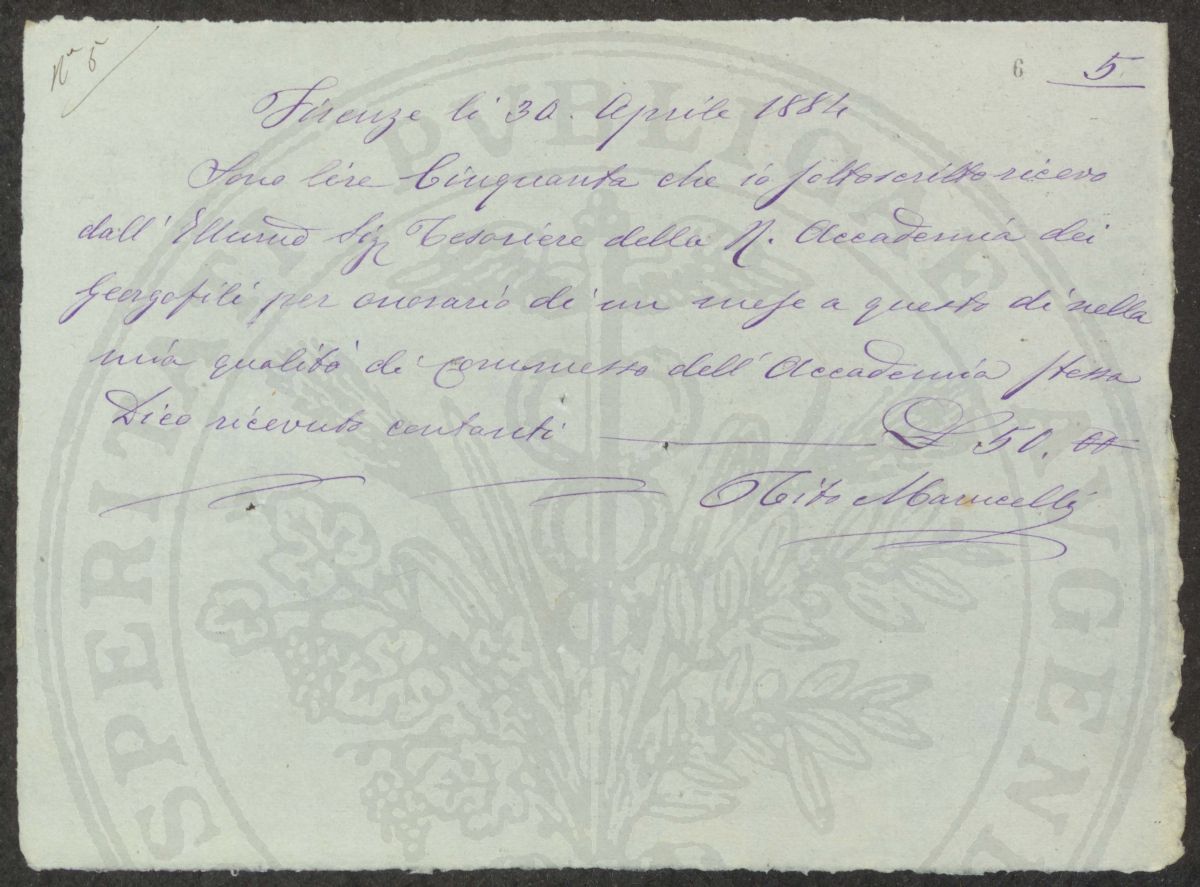 N° 5
6 5
Firenze li 30. Aprile 1884
Sono lire Cinquanta che io sottoscritto ricevo
dall' Illumo Sigr Tesoriere della R. Accademia dei
Georgofili per onorario di un mese a questo dì nella
mia qualità di commesso dell' Accademia stessa
Dico ricevuto contanti L 50. 00
Tito Marucelli
PROSPERITATI PVBLICAE AVGENDAE